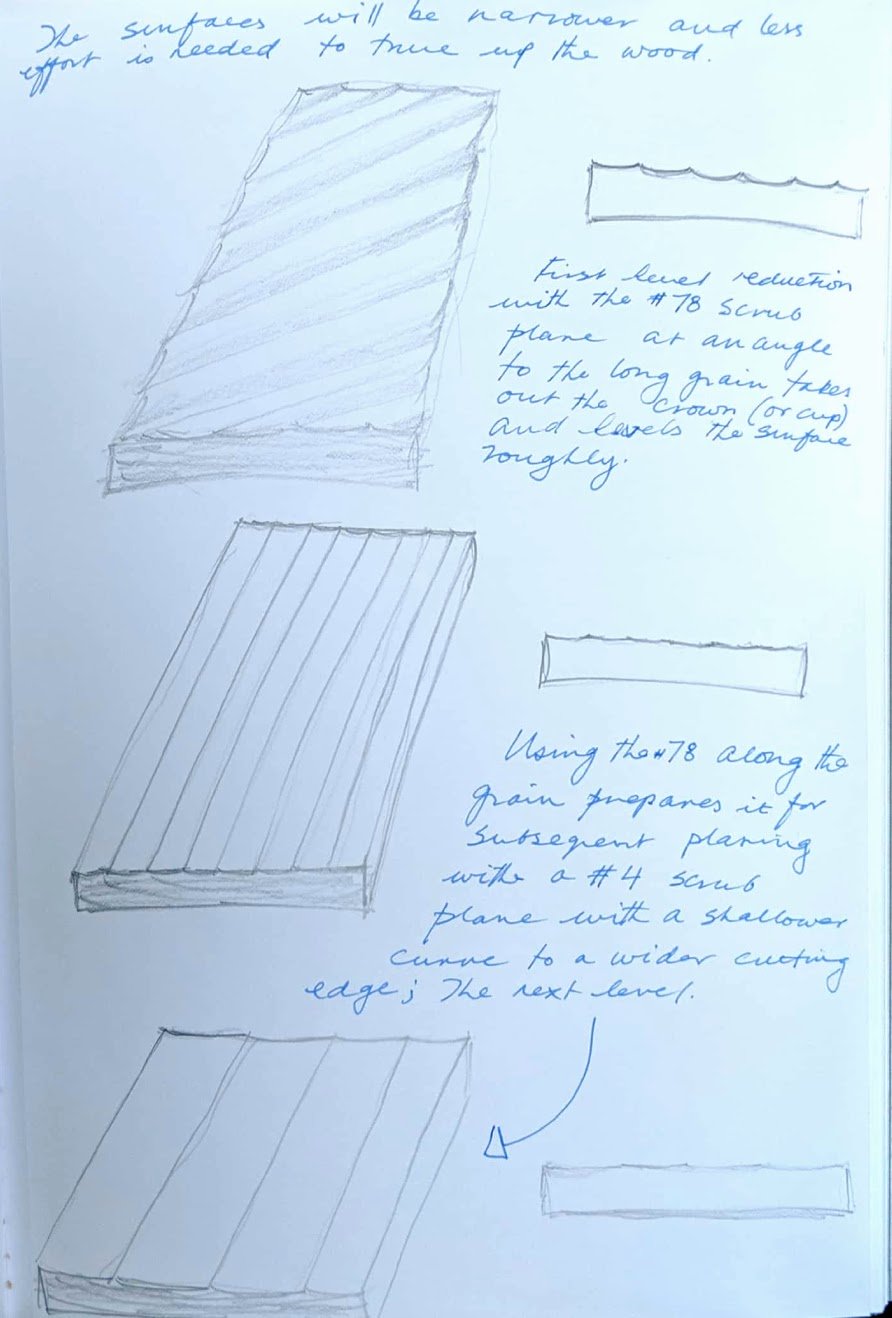 The surfaces will be narrower and less
effort is needed to true up the wood.
First level reduction
with the #78 scrub
plane at an angle
to the long grain takes
out the crown (or cup)
and levels the surface
roughly.
Using the #78 along the
grain prepares it for
subseqent planing
with a #4 scrub
plane with a shallower
curve to a wider cutting
edge; The next level.